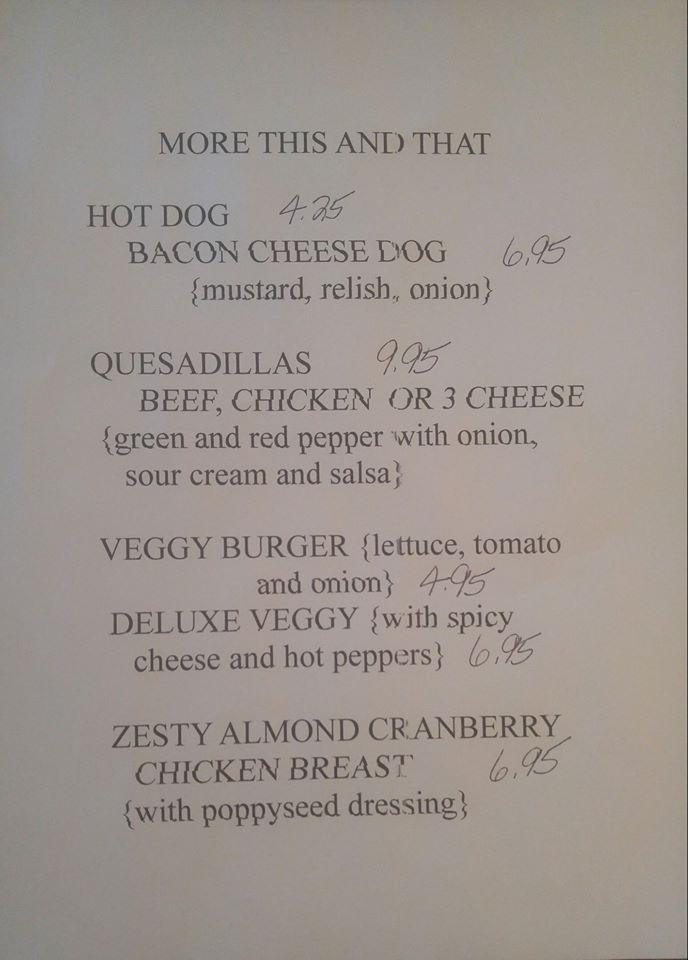 MORE THIS AND THAT
HOT DOG 4.25
BACON CHEESE DOG 6.95
{mustard, relish, onion}
QUESADILLAS 9.95
BEEF, CHICKEN OR 3 CHEESE
{green and red pepper with onion,
sour cream and salsa}
VEGGY BURGER {lettuce, tomato
and onion} 4.95
DELUXE VEGGY {with spicy
cheese and hot peppers} 6.95
ZESTY ALMOND CRANBERRY
CHICKEN BREAST 6.95
{with poppyseed dressing}